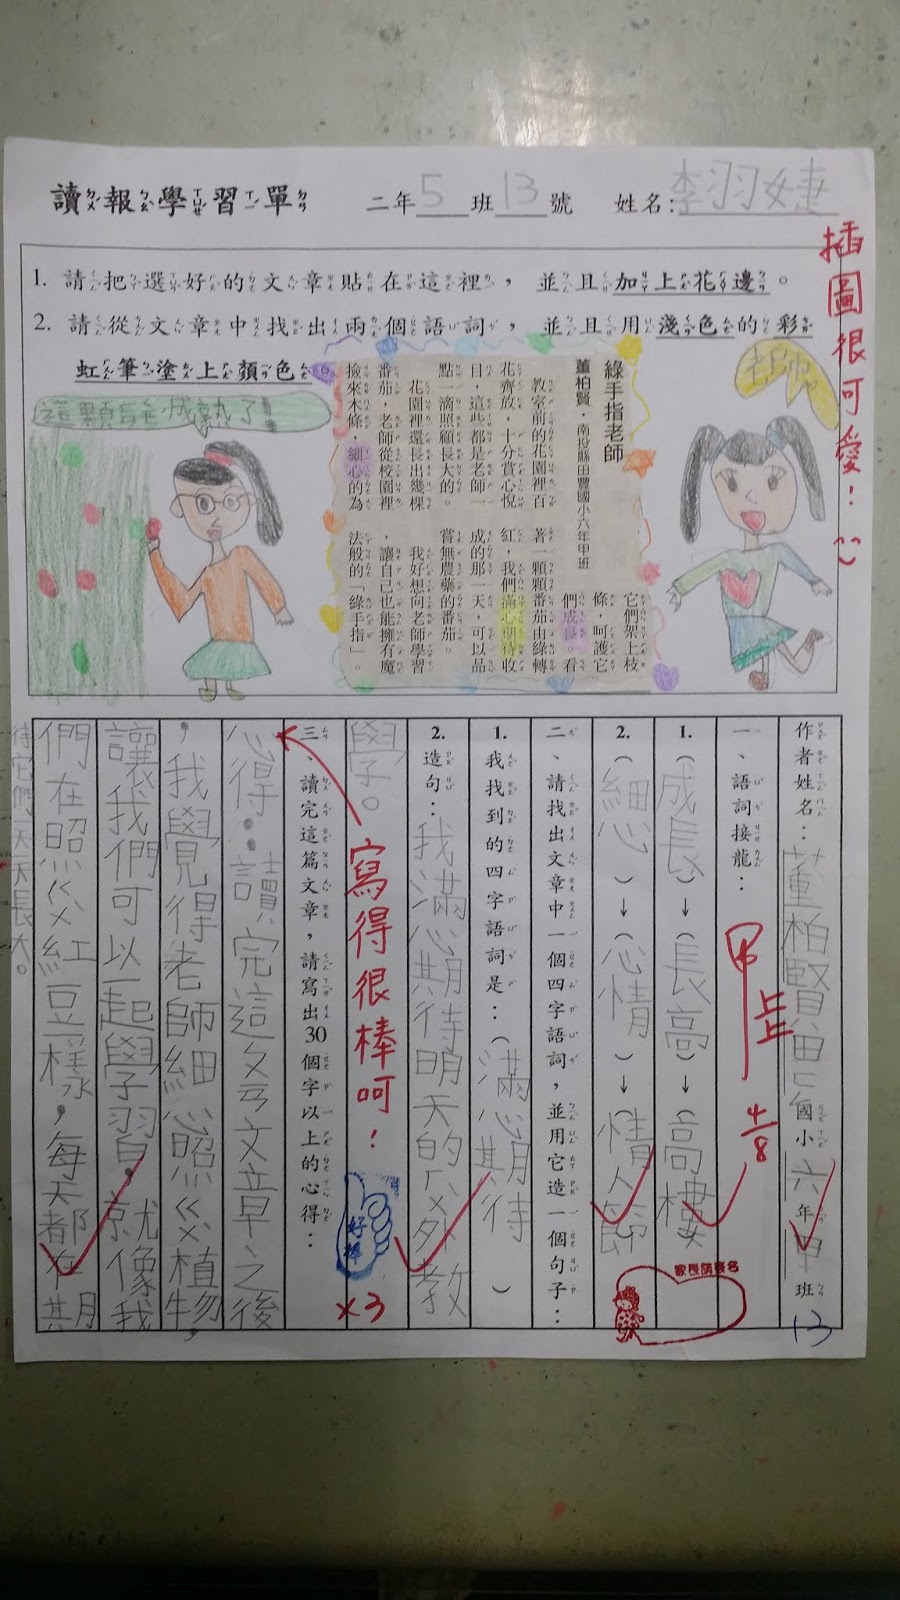 讀報學習單 二年5班13號 姓名：李羽婕
1. 請把選好的文章貼在這裡，並且加上花邊。
2. 請從文章中找出兩個語詞，並且用淺色的彩
虹筆塗上顏色。
插圖很可愛！
老師
這顆已經成熟了！
綠手指老師
董柏賢．南投縣田豐國小六年甲班
教室前的花園裡百
花齊放，十分賞心悅
目，這些都是老師一
點一滴照顧長大的。
花園裡還長出幾棵
番茄，老師從校園裡
撿來木條，細心的為
它們架上枝
條，呵護它
們成長。看
著一顆顆番茄由綠轉
紅，我們滿心期待收
成的那一天，可以品
嘗無農藥的番茄。
我好想向老師學習
，讓自己也能擁有魔
法般的「綠手指」。
作者姓名：董柏賢 國小六年甲班
13
一、語詞接龍：
甲上上
4/8
1.（成長）→（長高）→（高樓
2.（細心）→（心情）→（情人節
家長請簽名
二、請找出文章中一個四字語詞，並用它造一個句子：
1. 我找到的四字語詞是：（滿心期待）
2. 造句：我滿心期待明天的ㄏㄨㄛ教
學。
寫得很棒呵！
好棒
×3
三、讀完這篇文章，請寫出30個字以上的心得：
心得：讀完這ㄆㄢ文章之後
，我覺得老師細心照ㄍㄨ植物，
讓我們可以一起學習，就像我
們在照ㄍㄨ紅豆一樣，每天都在期
待它們一天天長大。